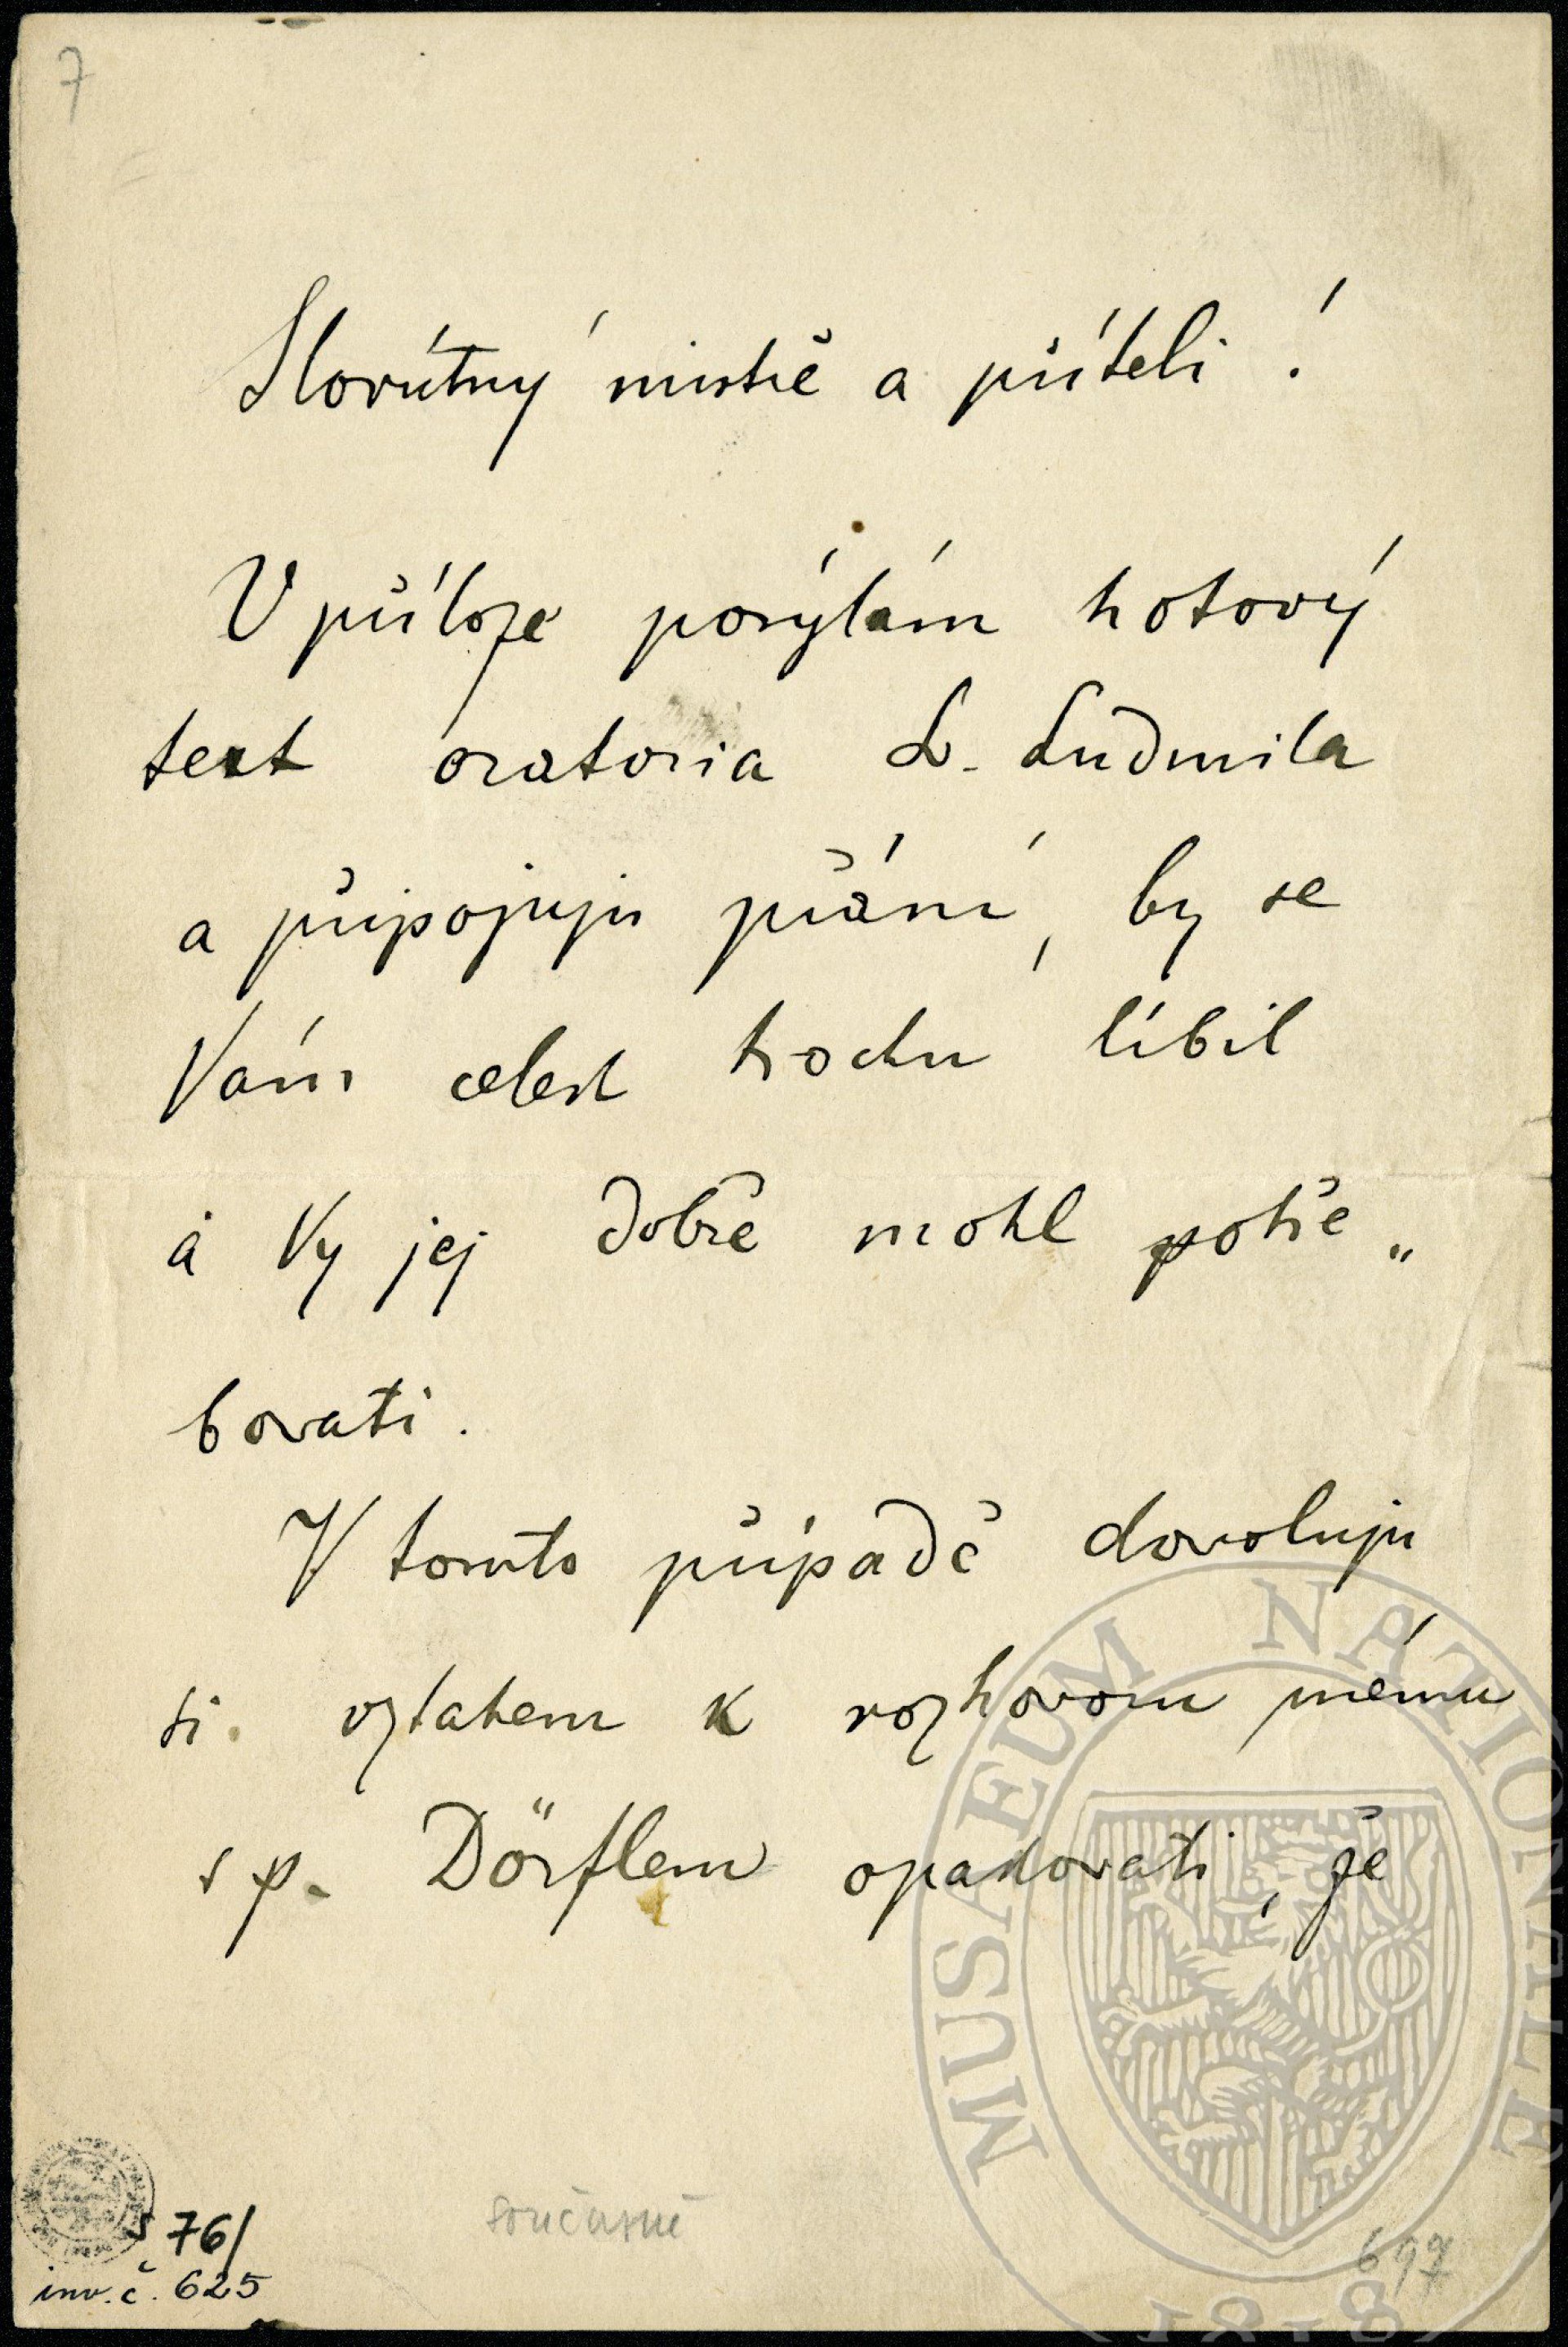 7
Slovútný mistře a příteli!
V příloze posýlám hotový
text oratoria S. Ludmila
a připojuju přání, by se
Vám trochu líbil
a Vy jej dobře mohl potře„
bovati.
V tomto případě dovoluju
si vztahem k rozhovoru mému
s p. Dörflem opakovati, že
S 76/
inv. č. 625
současně
697
MUSAEUM NATIONALE
1818